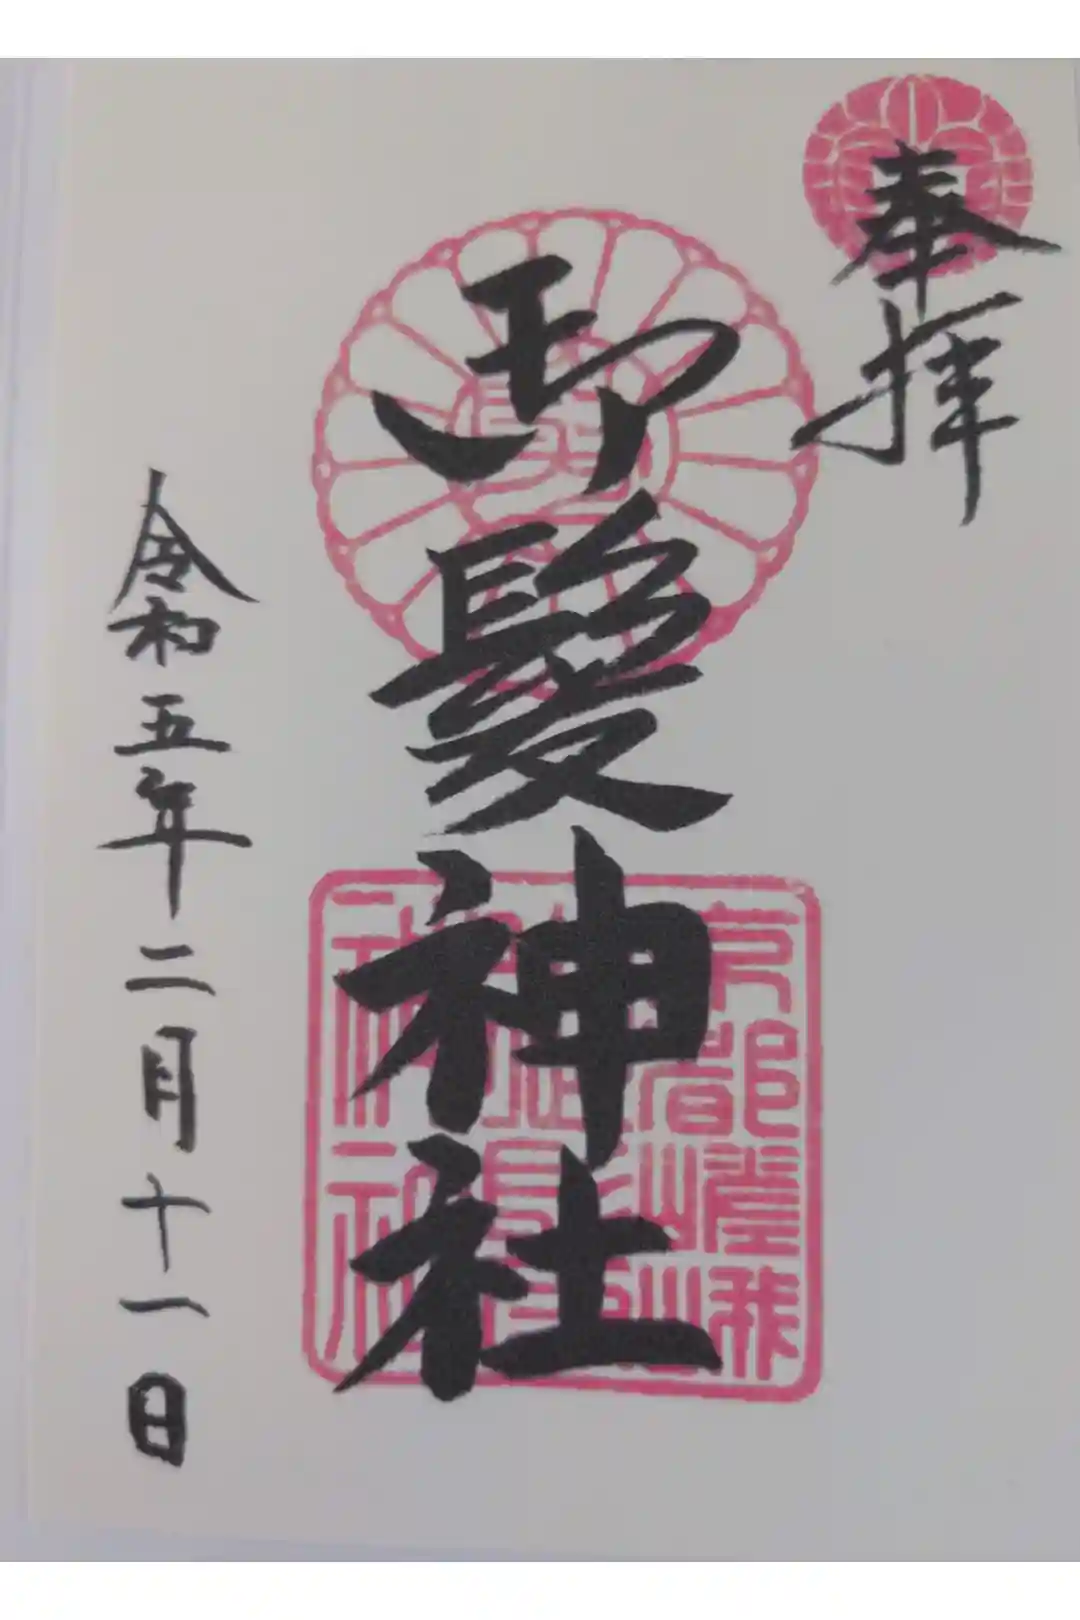 奉拝
御髪神社
令和五年二月十一日